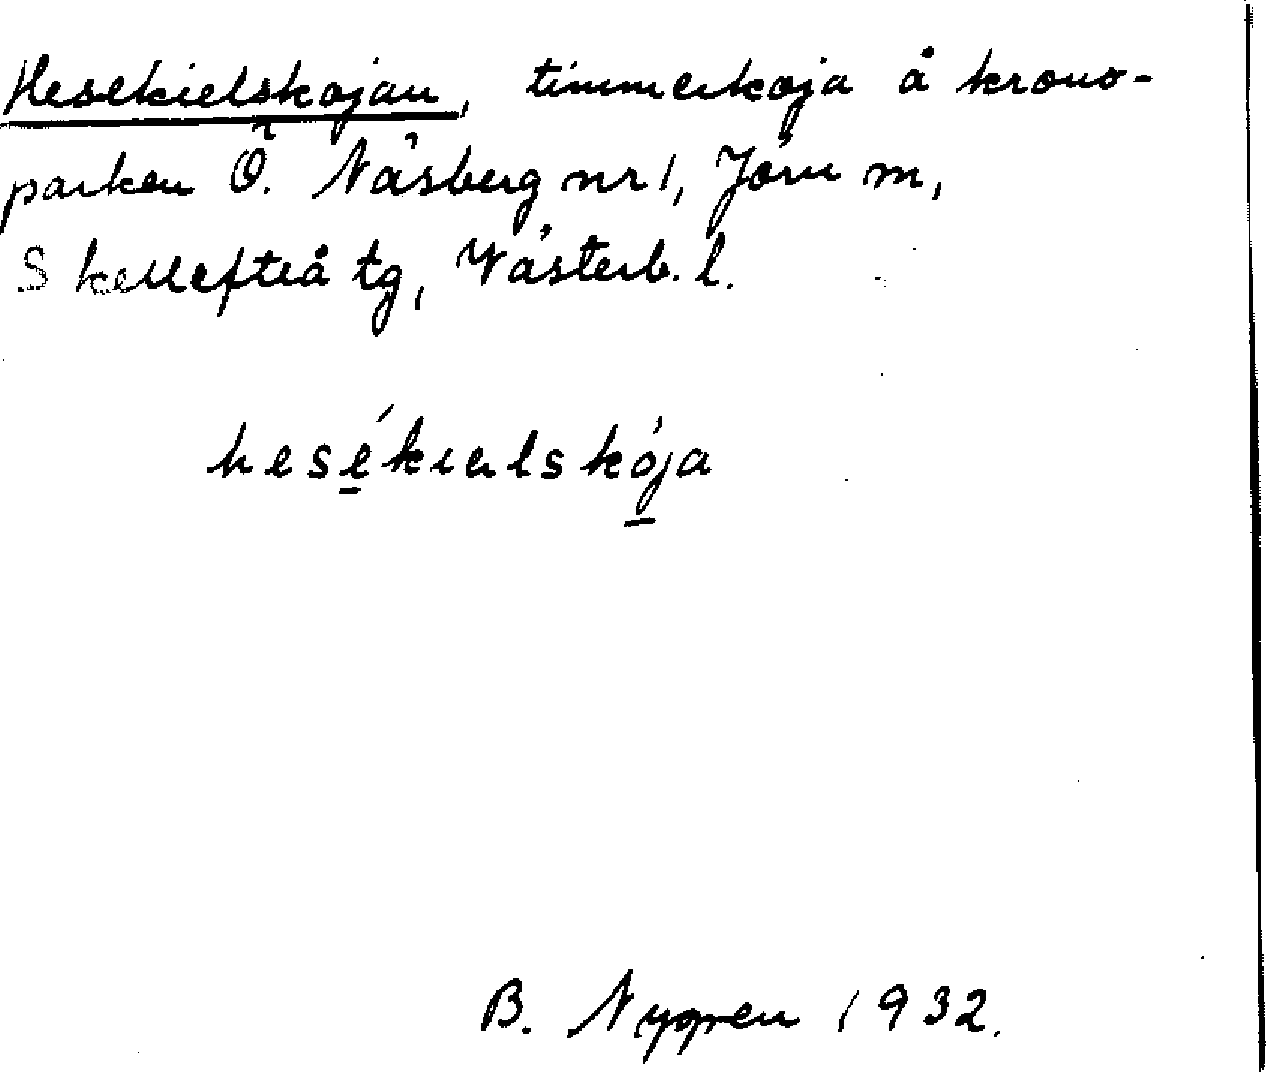 Hesekielskojan, timmerkoja å krono-
parken Ö. Näsberg nr 1, Jörn m,
Skellefteå tg, Västerb. l.
hesékielskója
B. Nygren 1932.